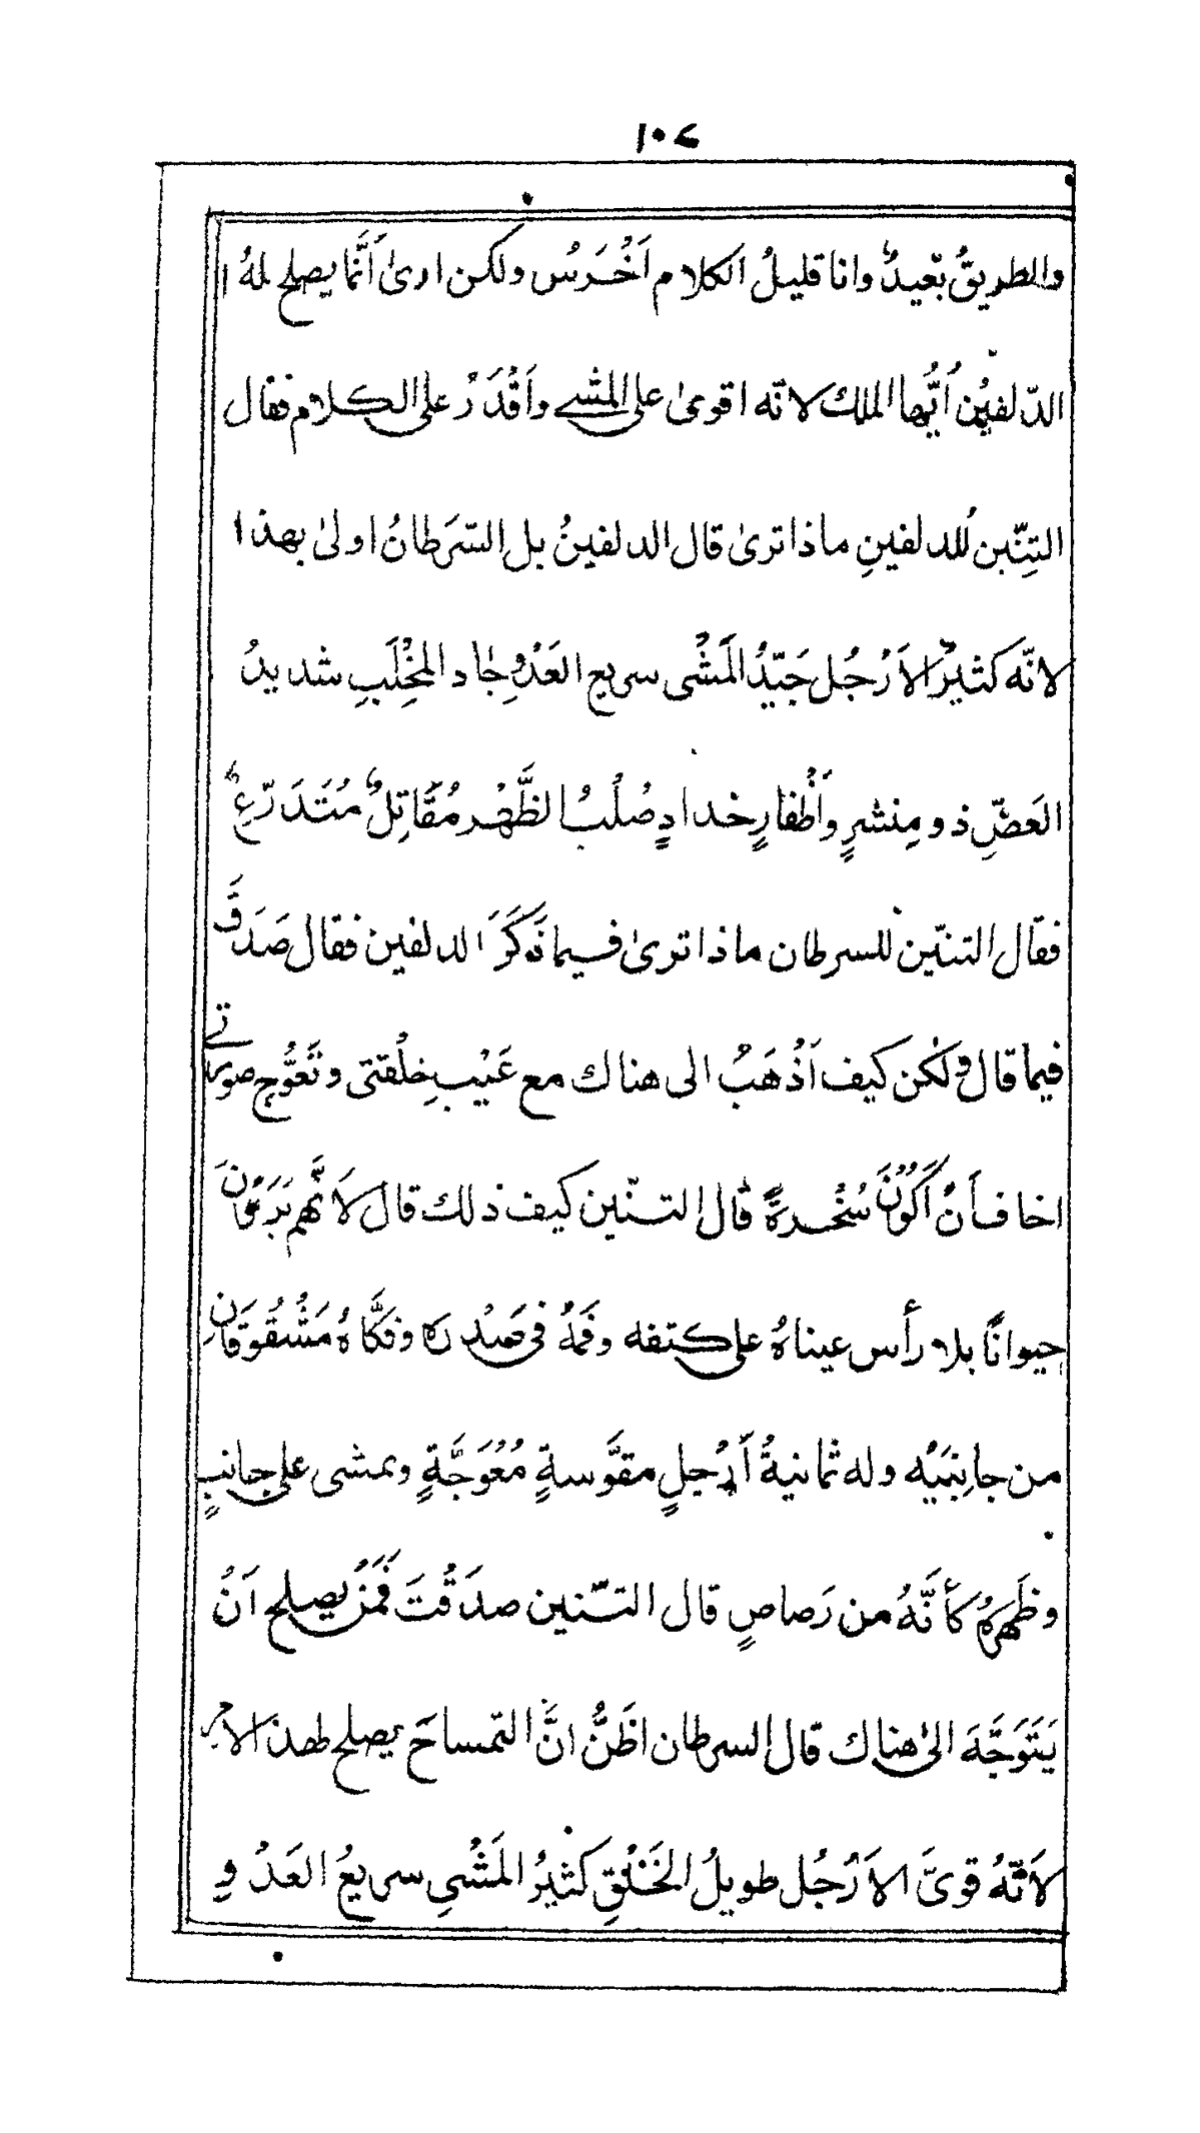 ١٠٧
والطريقُ بعيدٌ وانا قليلُ الكلام اَخْرَسُ ولكن ارىٰ اَنَّما يصلح لهٰذا
الدّلفِيْن اَيُّها الملك لانّه اقوىٰ على المشى واَقْدَرُ على الكلام فقال
التِنّين للدلفينِ ماذا ترىٰ قال الدلفينُ بل السّرَطانُ اولىٰ بهذا
لانّه كثيرُ الاَرْجُل جَيّدُ المَشْى سريع العَدْوِ حادّ المِخْلَبِ شديدُ
العَضِّ ذو مِنشرٍ واَظْفارٍ حدادٍ صُلْبُ الظَّهْر مُقَاتِلٌ مُتَدَرّعٌ
فقال التنّين للسرطان ماذا ترىٰ فيما ذَكَرَ الدلفين فقال صَدَقَ
فيما قال ولٰكن كيف اَذْهَبُ الى هناك مع عَيْبِ خِلْقتى وتَعَوُّجِ صورتى
اخاف اَنْ اَكُوْنَ سُخْرةً قال التنّين كيف ذلك قال لاَنَّهم يَرَوْنَ
حيوانًا بلا رأس عيناهُ على كتفه وفَمُهُ فى صَدْرِه وفَكَّاهُ مَشْقُوقَانِ
من جانِبَيْه وله ثمانيةُ اَرْجلٍ مقوَّسةٍ مُعْوَجَّةٍ ويمشى على جانبٍ
وظَهرهُ كأنَّهُ من رَصاصٍ قال التنّين صدَقْتَ فَمَنْ يصلح اَنْ
يَتَوَجَّهَ الىٰ هناك قال السرطان اظَنُّ انَّ التمساحَ يصلح لهذا الامر
لاَنَّهُ قوىَّ الاَرْجُل طويلُ الخَلْقِ كثيرُ المَشْىِ سريعُ العَدْوِ